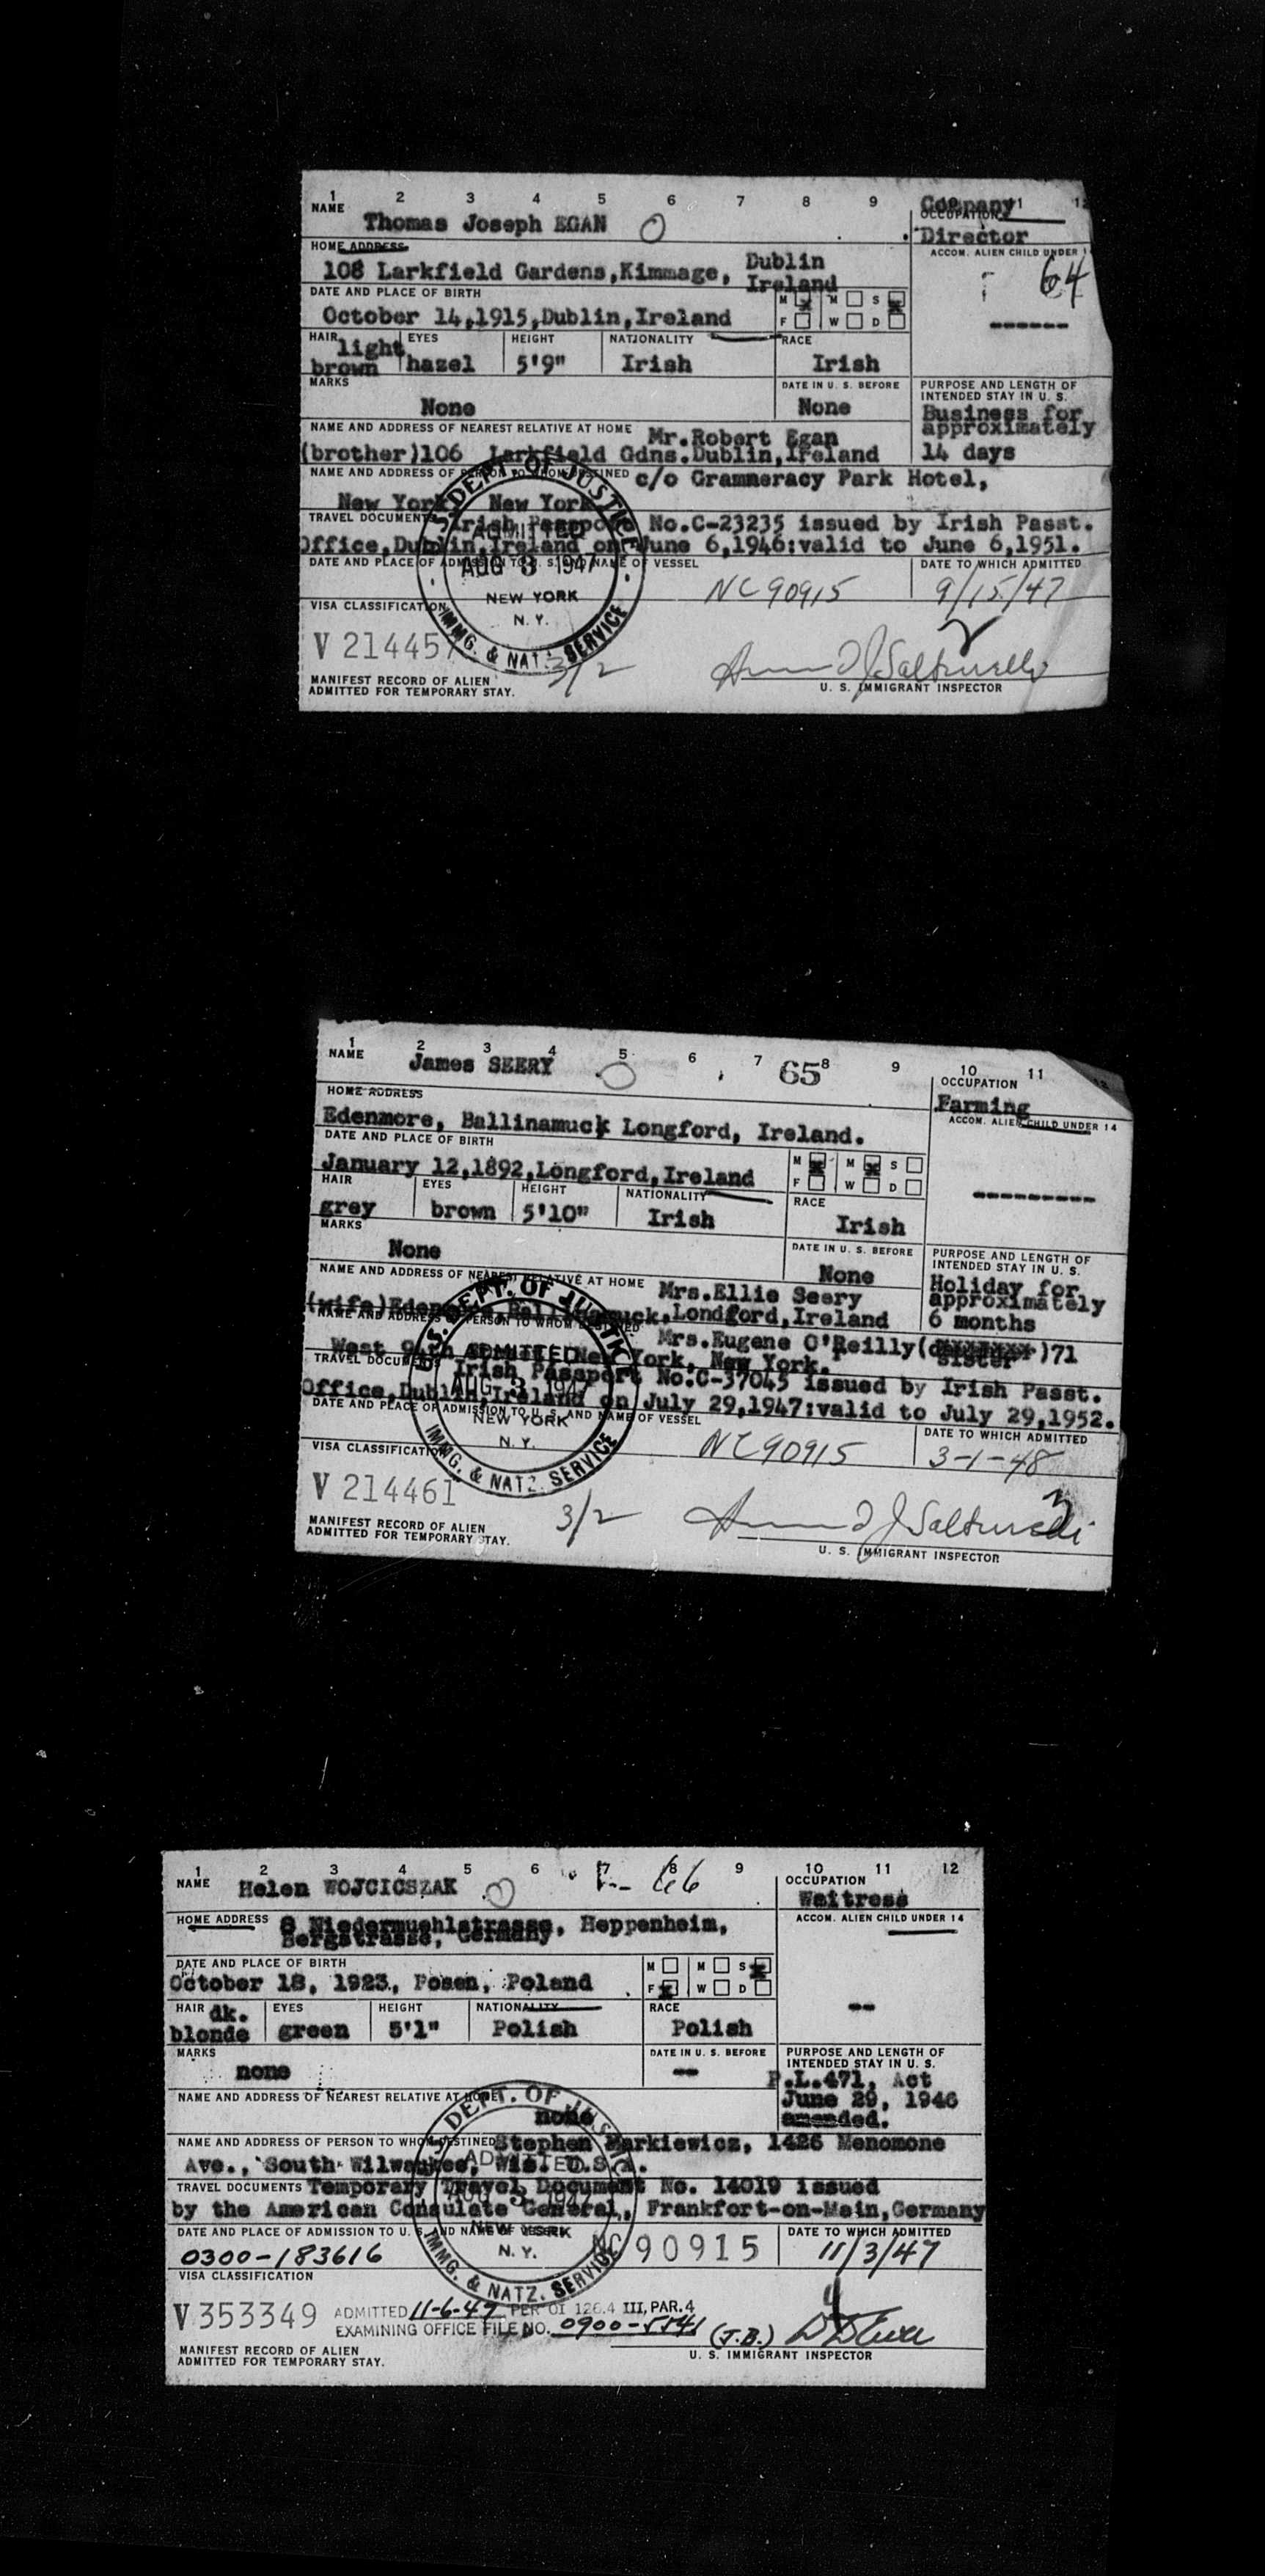 1 2 3 4 5 6 7 8 9 11 12
NAME Thomas Joseph EGAN O
Company
OCCUPATION
Director
HOME ADDRESS
108 Larkfield Gardens,Kimmage, Dublin
Ireland
ACCOM. ALIEN CHILD UNDER 1
64
DATE AND PLACE OF BIRTH
October 14,1915,Dublin,Ireland
M M S
F W D
------
HAIR EYES HEIGHT NATIONALITY RACE
light
brown hazel 5'9" Irish Irish
MARKS DATE IN U. S. BEFORE
None None
PURPOSE AND LENGTH OF
INTENDED STAY IN U. S.
Business for
approximately
14 days
NAME AND ADDRESS OF NEAREST RELATIVE AT HOME Mr.Robert Egan
(brother)106 Larkfield Gdns.Dublin,Ireland
NAME AND ADDRESS OF PERSON TO WHOM DESTINED c/o Grammeracy Park Hotel,
New York, New York
TRAVEL DOCUMENTS Irish Passport No.C-23235 issued by Irish Passt.
Office,Dublin,Ireland on June 6,1946:valid to June 6,1951.
DATE AND PLACE OF ADMISSION TO U. S. AND NAME OF VESSEL DATE TO WHICH ADMITTED
NC90915 9/15/47
U.S. DEPT. OF JUSTICE
ADMITTED
AUG 3 1947
NEW YORK
N. Y.
IMMG. & NATZ. SERVICE
VISA CLASSIFICATION
V 214457
3/2
2
MANIFEST RECORD OF ALIEN
ADMITTED FOR TEMPORARY STAY.
U. S. IMMIGRANT INSPECTOR
1 2 3 4 5 6 7 8 9 10 11 12
NAME James SEERY O 65
OCCUPATION
Farming
HOME ADDRESS
Edenmore, Ballinamuck Longford, Ireland.
ACCOM. ALIEN CHILD UNDER 14
DATE AND PLACE OF BIRTH
January 12,1892,Longford,Ireland
M M S
F W D
----------
HAIR EYES HEIGHT NATIONALITY RACE
grey brown 5'10" Irish Irish
MARKS DATE IN U. S. BEFORE
None None
PURPOSE AND LENGTH OF
INTENDED STAY IN U. S.
Holiday for
approximately
6 months
NAME AND ADDRESS OF NEAREST RELATIVE AT HOME Mrs.Ellie Seery
(wife)Edenmore,Ballinamuck,Londford,Ireland
NAME AND ADDRESS OF PERSON TO WHOM DESTINED
Mrs.Eugene O'Reilly( sister )71
West 94th Street, New York, New York.
TRAVEL DOCUMENTS Irish Passport No.C-37045 issued by Irish Passt.
Office,Dublin,Ireland on July 29,1947:valid to July 29,1952.
DATE AND PLACE OF ADMISSION TO U. S. AND NAME OF VESSEL DATE TO WHICH ADMITTED
NC90915 3-1-48
U.S. DEPT. OF JUSTICE
ADMITTED
AUG 3 1947
NEW YORK
N. Y.
IMMG. & NATZ. SERVICE
VISA CLASSIFICATION
V 214461
3/2
3
MANIFEST RECORD OF ALIEN
ADMITTED FOR TEMPORARY STAY.
U. S. IMMIGRANT INSPECTOR
1 2 3 4 5 6 7 8 9 10 11 12
NAME Helen WOJCICSZAK O 66
OCCUPATION
Waitress
HOME ADDRESS 8 Niedermuehlstrasse, Heppenheim,
Bergstrasse, Germany
ACCOM. ALIEN CHILD UNDER 14
DATE AND PLACE OF BIRTH
October 18, 1923, Posen, Poland
M M S
F W D
--
HAIR EYES HEIGHT NATIONALITY RACE
dk.
blonde green 5'1" Polish Polish
MARKS DATE IN U. S. BEFORE
none --
PURPOSE AND LENGTH OF
INTENDED STAY IN U. S.
P.L.471, Act
June 29, 1946
amended.
NAME AND ADDRESS OF NEAREST RELATIVE AT HOME
none
NAME AND ADDRESS OF PERSON TO WHOM DESTINED Stephen Markiewicz, 1426 Menomone
Ave., South Wilwaukee, Wis. U.S.A.
TRAVEL DOCUMENTS Temporary Travel Document No. 14019 issued
by the American Consulate General, Frankfort-on-Main,Germany
DATE AND PLACE OF ADMISSION TO U. S. AND NAME OF VESSEL DATE TO WHICH ADMITTED
0300-183616 NC 90915 11/3/47
U.S. DEPT. OF JUSTICE
ADMITTED
AUG 3 1947
NEW YORK
N. Y.
IMMG. & NATZ. SERVICE
VISA CLASSIFICATION
V 353349 ADMITTED 11-6-47 PER OI 126.4 III, PAR. 4
EXAMINING OFFICE FILE NO. 0900-5141 (J.B.)
4
MANIFEST RECORD OF ALIEN
ADMITTED FOR TEMPORARY STAY.
U. S. IMMIGRANT INSPECTOR